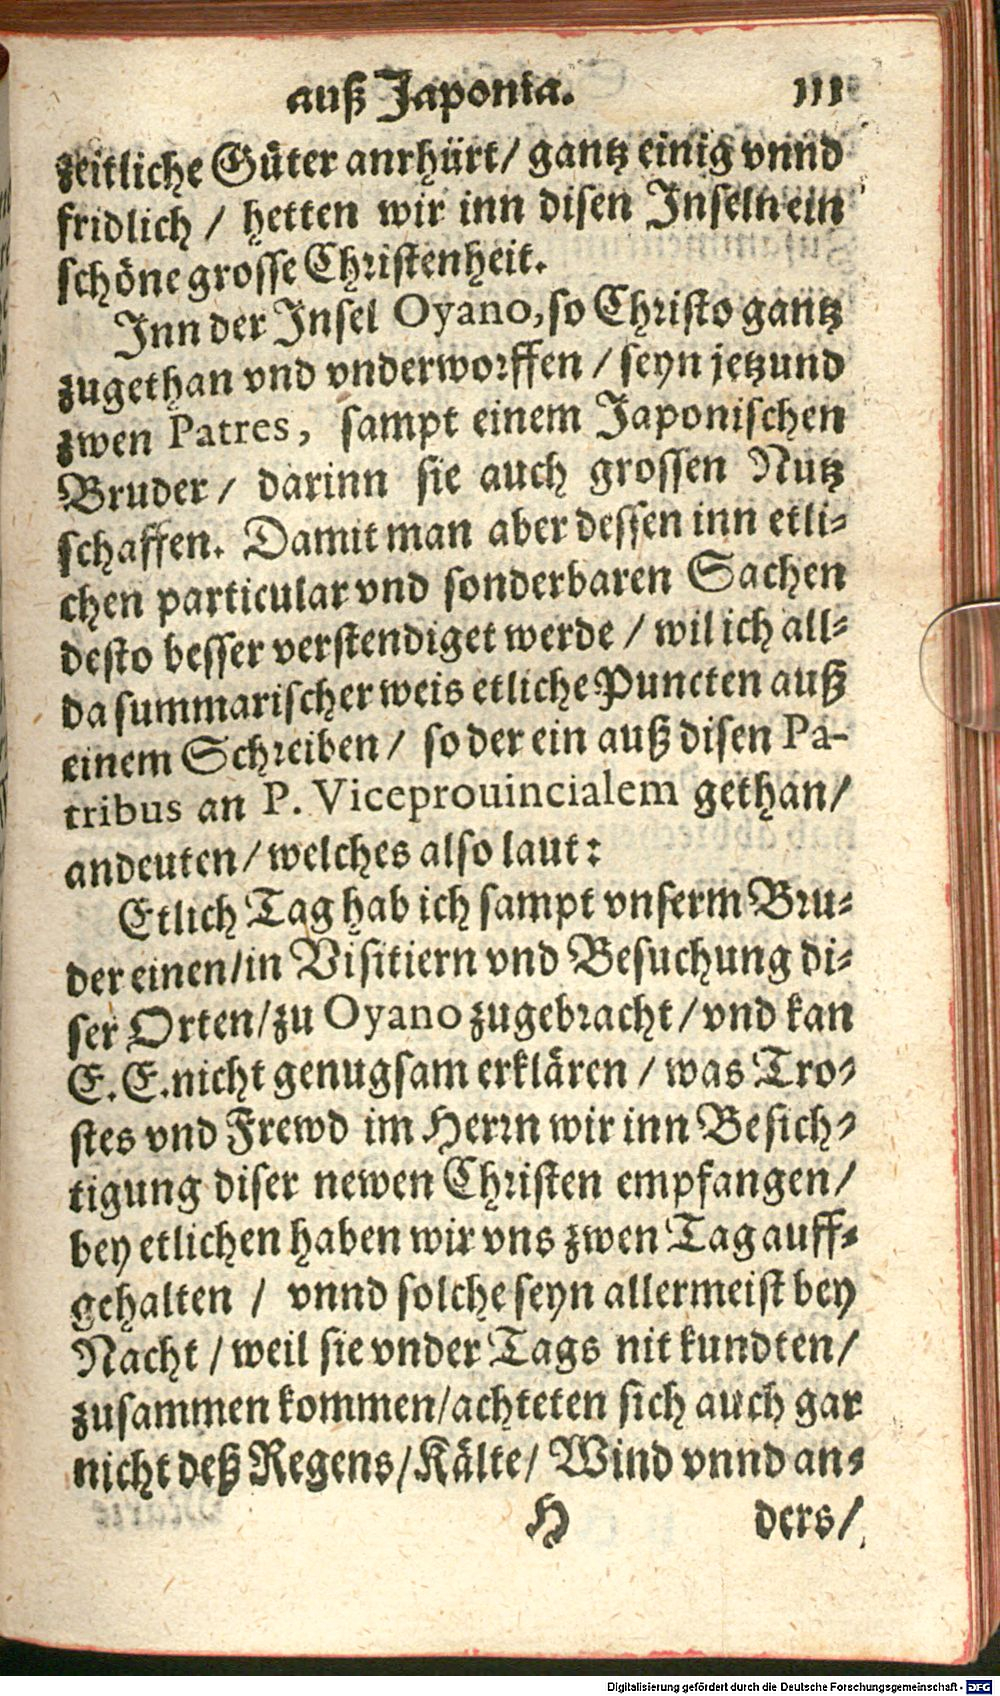 auß Japonia. 111
zeitliche Güter anrhürt/ gantz einig vnnd
fridlich / hetten wir inn disen Inseln ein
schöne grosse Christenheit.
Inn der Insel Oyano, so Christo gantz
zugethan vnd vnderworffen / seyn jetzund
zwen Patres, sampt einem Japonischen
Bruder/ darinn sie auch grossen Nutz
schaffen. Damit man aber dessen inn etli-
chen particular vnd sonderbaren Sachen
desto besser verstendiget werde / wil ich all-
da summarischer weis etliche Puncten auß
einem Schreiben/ so der ein auß disen Pa-
tribus an P. Viceprouincialem gethan/
andeuten/ welches also laut:
Etlich Tag hab ich sampt vnserm Bru-
der einen/in Visitiern vnd Besuchung di-
ser Orten/zu Oyano zugebracht/ vnd kan
E. E. nicht genugsam erklären / was Tro-
stes vnd Frewd im Herrn wir inn Besich-
tigung diser newen Christen empfangen/
bey etlichen haben wir vns zwen Tag auff-
gehalten / vnnd solche seyn allermeist bey
Nacht / weil sie vnder Tags nit kundten/
zusammen kommen/achteten sich auch gar
nicht deß Regens/Kälte/ Wind vnnd an-
H ders/
Digitalisierung gefördert durch die Deutsche Forschungsgemeinschaft - DFG